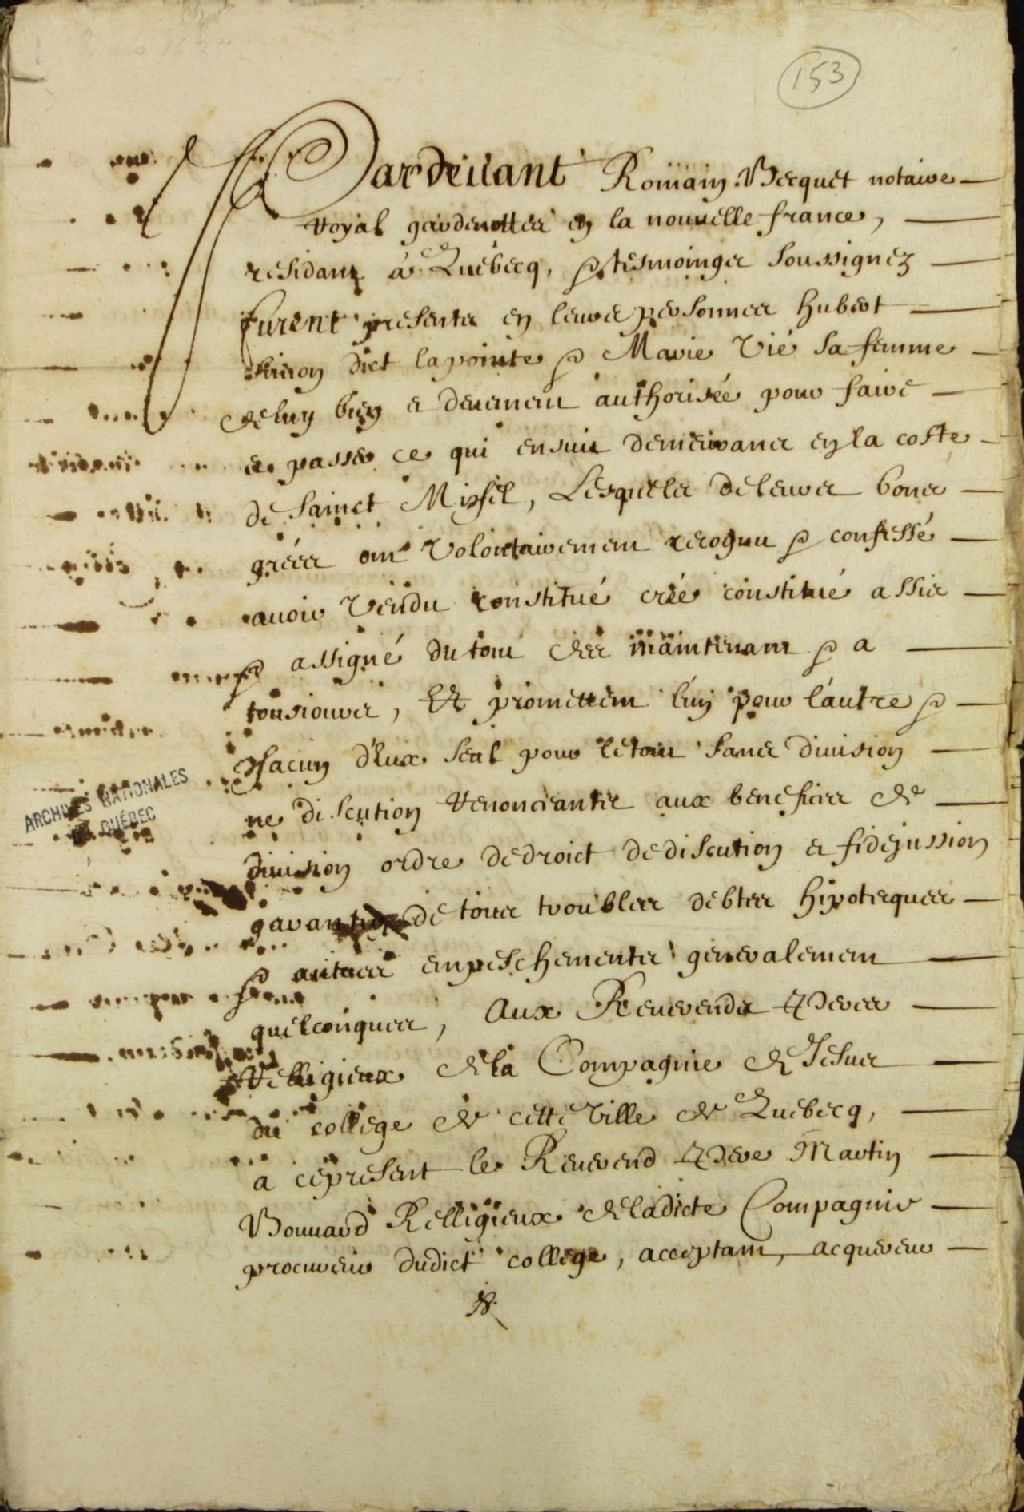 153
Pardevant Romain Becquet notaire
Royal gardenottes en la nouvelle france,
residant a Quebecq, & tesmoings soussignez
furent presents en leurs personnes Hubert
Simon dict lapointe & Marie Vié sa femme
de luy bien et deuement authorisée pour faire
et passer ce qui ensuit demeurans en la coste
de Sainct Michel, Lesquels de leurs bons
gréés ont Volontairement recognu & confessé
avoir Vendu constitué créé constitué assis
& assigné du tout des maintenant & a
tousiours, Et promettent l'un pour l'autre &
chacun d'Eux seul pour le tout sans division
ne discution Renonciants aux benefices de
division ordre de droict de discution et fidejussion
garantir de tous troubles debtes hipotecques
& autres empeschements generalement
quelconques, Aux Reverends Peres
Relligieux de la Compagnie de Jesus
du college de cette Ville de Quebecq,
a ce present le Reverend Pere Martin
Bouuard Relligieux de ladicte Compagnie
procureur dudict college, acceptant, acquereur
ARCHIVES NATIONALES
QUÉBEC